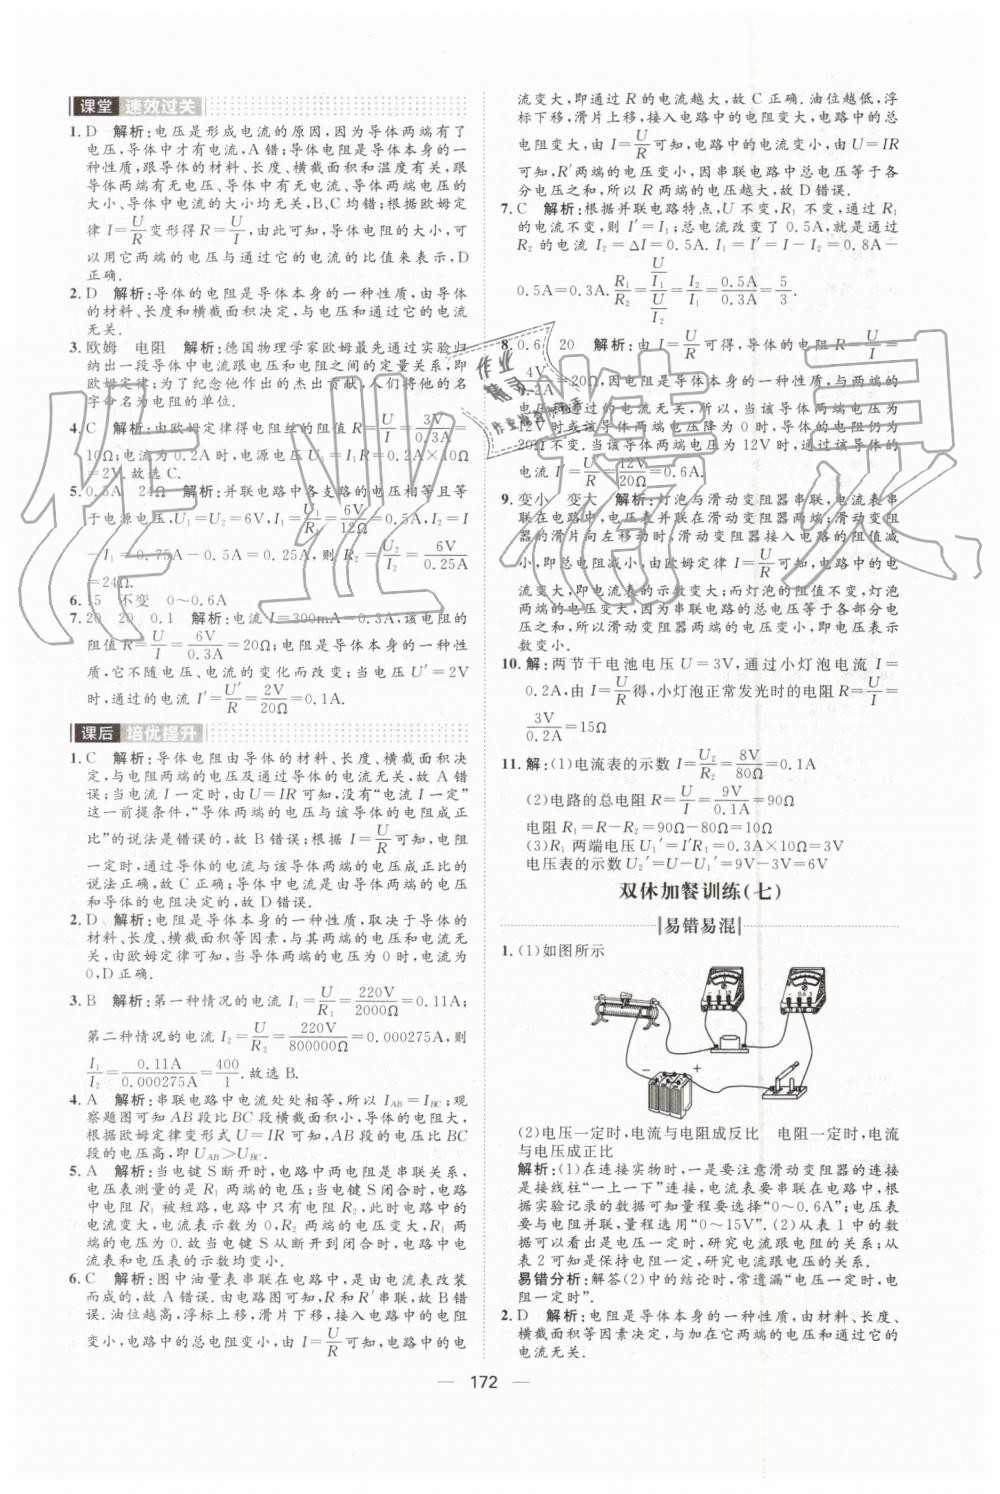 课堂 速效过关
1. D　解析:电压是形成电流的原因,因为导体两端有了
电压,导体中才有电流,A错;导体电阻是导体本身的一
种性质,跟导体的材料、长度、横截面积和温度有关,跟
导体两端有无电压、导体中有无电流、导体两端电压的
大小、导体中电流的大小均无关,B、C均错;根据欧姆定
律 I=U/R变形得 R=U/I,由此可知,导体电阻的大小,可
以用它两端的电压与通过它的电流的比值来表示,D
正确.
2. D　解析:导体的电阻是导体本身的一种性质,由导体
的材料、长度和横截面积决定,与电压和通过它的电流
无关.
3. 欧姆　电阻　解析:德国物理学家欧姆最先通过实验归
纳出一段导体中电流跟电压和电阻之间的定量关系,即
欧姆定律;为了纪念他作出的杰出贡献,人们将他的名
字命名为电阻的单位.
4. C　解析:由欧姆定律得电阻丝的阻值 R=U/I=3V/0.3A=
10Ω;电流为0.2A时,电源电压 U₁=I₁R=0.2A×10Ω
=2V.故选C.
5. 0.5A　24Ω　解析:并联电路中各支路的电压相等且等
于电源电压,U₁=U₂=6V,I₁=U₁/R₁=6V/12Ω=0.5A,I₂=I
-I₁=0.75A-0.5A=0.25A,则 R₂=U₂/I₂=6V/0.25A
=24Ω.
6. 15　不变　0～0.6A
7. 20　20　0.1　解析:电流 I=300mA=0.3A,该电阻的
阻值 R=U/I=6V/0.3A=20Ω;电阻是导体本身的一种性
质,它不随电压、电流的变化而改变;当电压 U′=2V
时,通过的电流 I′=U′/R=2V/20Ω=0.1A.
课后 培优提升
1. C　解析:导体电阻由导体的材料、长度、横截面积决
定,与电阻两端的电压及通过导体的电流无关,故A错
误;当电流 I 一定时,由U=IR可知,没有“电流 I 一定”
这一前提条件,“导体两端的电压与该导体的电阻成正
比”的说法是错误的,故B错误;根据 I=U/R可知,电阻
一定时,通过导体的电流与该导体两端的电压成正比的
说法正确,故C正确;导体中电流是由导体两端的电压
和导体的电阻决定的,故D错误.
2. D　解析:电阻是导体本身的一种性质,取决于导体的
材料、长度、横截面积等因素,与其两端的电压和电流无
关,由欧姆定律可知,当导体两端的电压为0时,电流为
0,D正确.
3. B　解析:第一种情况的电流 I₁=U/R₁=220V/2000Ω=0.11A;
第二种情况的电流 I₂=U/R₂=220V/800000Ω=0.000275A,则
I₁/I₂=0.11A/0.000275A=400/1.故选B.
4. A　解析:串联电路中电流处处相等,所以 I_AB=I_BC;观
察题图可知AB段比BC段横截面积小,导体的电阻大,
根据欧姆定律变形式 U=IR 可知,AB段的电压比BC
段的电压高,即 U_AB>U_BC.
5. A　解析:当电键S断开时,电路中两电阻是串联关系,
电压表测量的是 R₁ 两端的电压;当电键S闭合时,电路
中电阻 R₁ 被短路,电路中只有电阻 R₂,此时电路中的
电流变大,电流表示数为0,R₂ 两端的电压变大,R₁ 两
端的电压变为0.故当S从断开到闭合时,电路中电流
表和电压表的示数均变小.
6. C　解析:图中油量表串联在电路中,是由电流表改装
而成的,故A错误.由电路图可知,R和R′串联,故B错
误.油位越高,浮标上移,滑片下移,接入电路中的电阻
变小,电路中的总电阻变小,由 I=U/R可知,电路中的电
流变大,即通过R的电流越大,故C正确.油位越低,浮
标下移,滑片上移,接入电路中的电阻变大,电路中的总
电阻变大,由 I=U/R可知,电路中的电流变小,由U=IR
可知,R′两端的电压变小,因串联电路中总电压等于各
分电压之和,所以R两端的电压越大,故D错误.
7. C　解析:根据并联电路特点,U不变,R₁ 不变,通过 R₁
的电流不变,则 I′=I₁;总电流改变了0.5A,就是通过
R₂ 的电流 I₂=ΔI=0.5A. I₁=I′=I-I₂=0.8A-
0.5A=0.3A. R₁/R₂=(U/I₁)/(U/I₂)=I₂/I₁=0.5A/0.3A=5/3.
8. 0.6　20　解析:由 I=U/R可得,导体的电阻 R=U/I=
4V/0.2A=20Ω,因电阻是导体本身的一种性质,与两端的
电压和通过的电流无关,所以,当该导体两端电压为
12V时或该导体两端电压降为0时,导体的电阻仍为
20Ω不变.当该导体两端电压为12V时,通过该导体的
电流 I=U/R=12V/20Ω=0.6A.
9. 变小　变大　解析:灯泡与滑动变阻器串联,电流表串
联在电路中,电压表并联在滑动变阻器两端;滑动变阻
器的滑片向左移动时,滑动变阻器接入电路的阻值减
小,即总电阻减小,由欧姆定律 I=U/R可知,电路中的电
流变大,即电流表的示数变大;而灯泡的阻值不变,灯泡
两端的电压变大,根据串联电路的总电压等于各部分电
压之和,所以滑动变阻器两端的电压变小,即电压表示
数变小.
10. 解:两节干电池电压 U=3V,通过小灯泡电流 I=
0.2A,由 I=U/R得,小灯泡正常发光时的电阻 R=U/I=
3V/0.2A=15Ω
11. 解:(1)电流表的示数 I=U₂/R₂=8V/80Ω=0.1A
(2)电路的总电阻 R=U/I=9V/0.1A=90Ω
电阻 R₁=R-R₂=90Ω-80Ω=10Ω
(3)R₁ 两端电压 U₁′=I′R₁=0.3A×10Ω=3V
电压表的示数 U₂′=U-U₁′=9V-3V=6V
双休加餐训练(七)
易错易混
1. (1)如图所示
－ ＋
(2)电压一定时,电流与电阻成反比　电阻一定时,电流
与电压成正比
解析:(1)在连接实物时,一是要注意滑动变阻器的连接
是接线柱“一上一下”;二是接线,电流表要串联在电路中,
根据实验记录的数据可知量程要选择“0～0.6A”;电压表
要与电阻并联,量程选用“0～15V”.(2)从表1中的数据
可以看出是电压一定时,研究电流跟电阻的关系;从
表2可知是保持电阻一定,研究电流跟电压的关系.
易错分析:解答(2)中的结论时,常遗漏“电压一定时,电
阻一定时”.
2. D　解析:电阻是导体本身的一种性质,由材料、长度、
横截面积等因素决定,与加在它两端的电压和通过它的
电流无关.
— 172 —
作业精灵